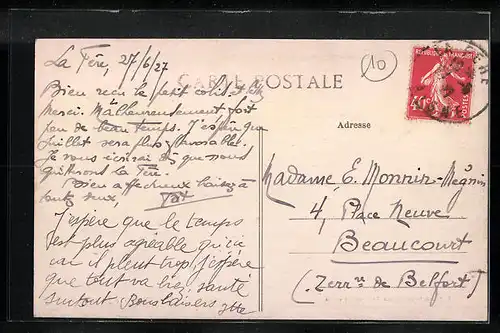 La Fère, 27/6/27
10
REPUBLIQUE FRANCAISE
CARTE POSTALE
Bien reçu le petit colis et
Merci. Malheureusement fait
peu de beau temps. J'espère que
Juillet sera plus favorable.
Je vous écrirai dès que nous
quitterons La Fère.
Bien affectueux baisers à
toutes deux,
J'espère que le temps
est plus agréable qu'ici
car il pleut trop, j'espère
que tout va bien, santé
surtout Bons baisers
POSTES
Adresse
Madame E. Monnin-Mégnin
4, Place Neuve
Beaucourt
(Terr^re de Belfort)